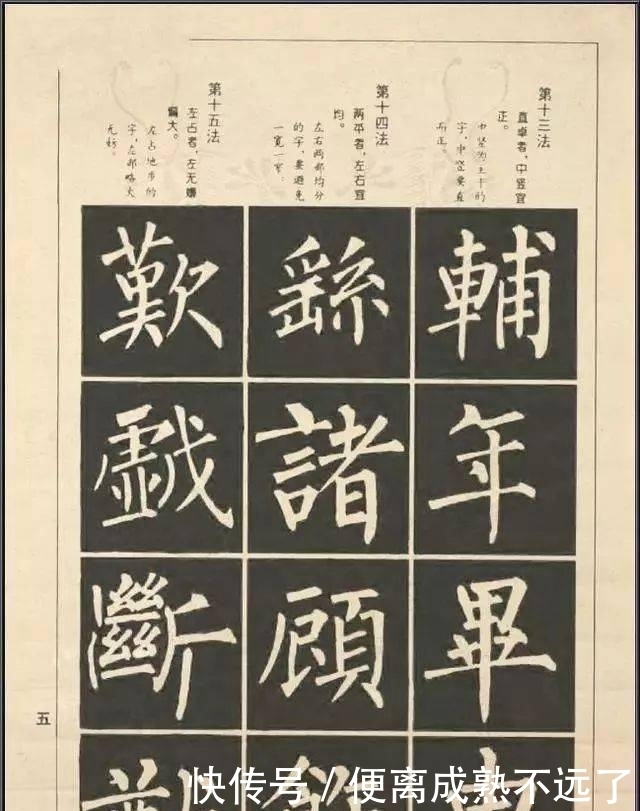 第十三法
直卓者，中竖宜
正。
中竖为主干的
字，中竖要直
而正。
輔
年
畢
第十四法
两平者，左右宜
均。
左右两部均分
的字，要避免
一宽一窄。
繇
諸
顧
第十五法
左占者，左无嫌
偏大。
左占地步的
字，左部略大
无妨。
歎
戯
斷
五
快传号/便离成熟不远了